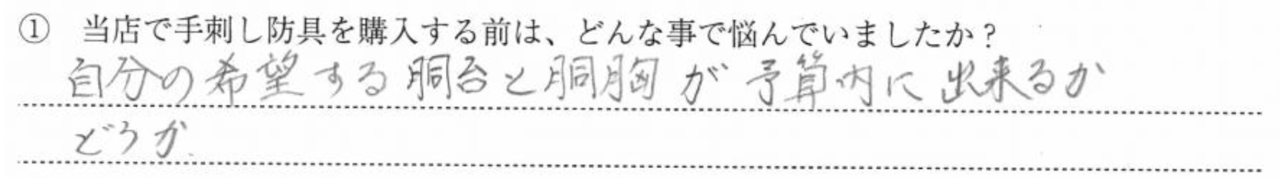 ① 当店で手刺し防具を購入する前は、どんな事で悩んでいましたか？
自分の希望する胴台と胴胸が予算内に出来るか
どうか.